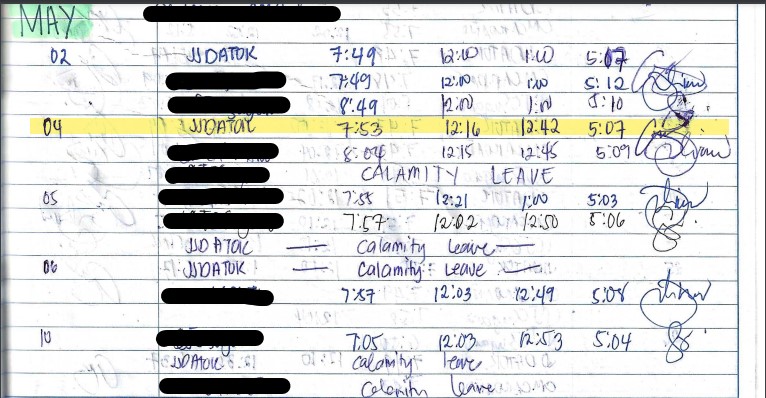 MAY
02 JJDATOK 7:49 12:00 1:00 5:07
7:49 12:00 1:00 5:12
8:49 12:00 1:00 5:10
04 JJDATOK 7:53 12:16 12:42 5:07
8:04 12:15 12:45 5:09
CALAMITY LEAVE
05 7:55 12:21 1:00 5:03
7:57 12:02 12:50 5:06
JJDATOK — Calamity leave —
06 JJDATOK — Calamity leave —
7:57 12:03 12:49 5:08
10 7:05 12:03 12:53 5:04
JJDATOK Calamity leave
Calamity leave